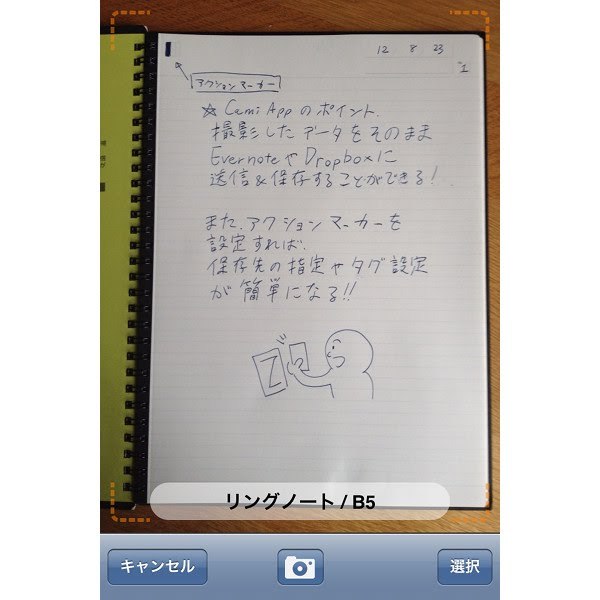 12 8 23
1
アクションマーカー
☆ Cami Appのポイント.
撮影したデータをそのまま
EvernoteやDropboxに
送信&保存することができる!
また、アクションマーカーを
設定すれば、
保存先の指定やタグ設定
が簡単になる!!
リングノート / B5
キャンセル
選択